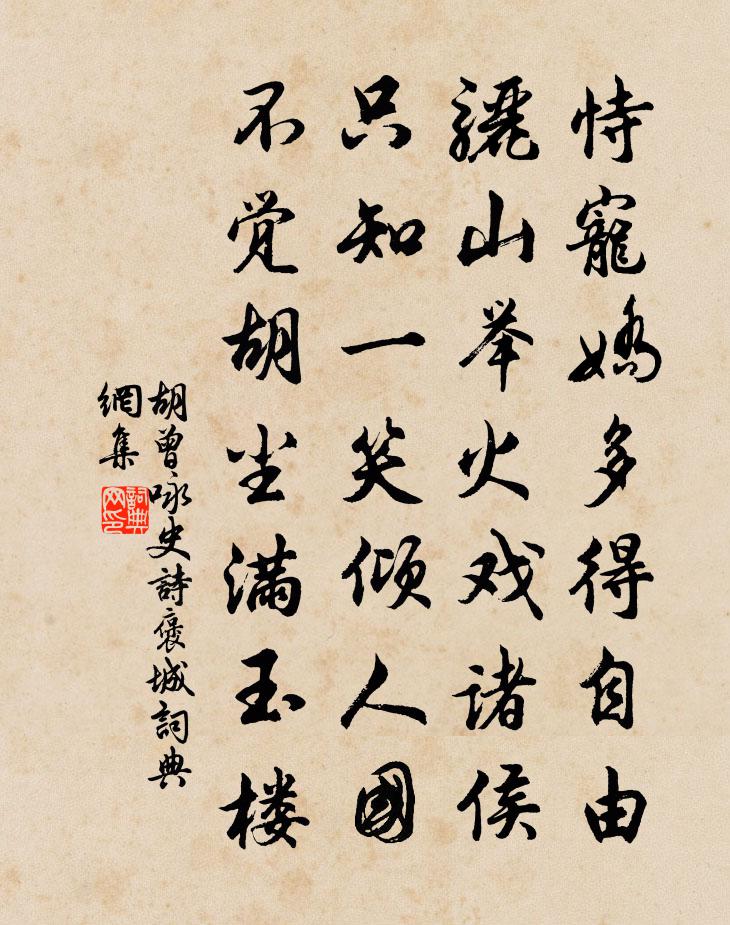 恃寵嬌多得自由
驪山举火戏诸侯
只知一笑傾人國
不觉胡尘满玉楼
胡曾咏史詩褒城詞典
網集
詞典
网印